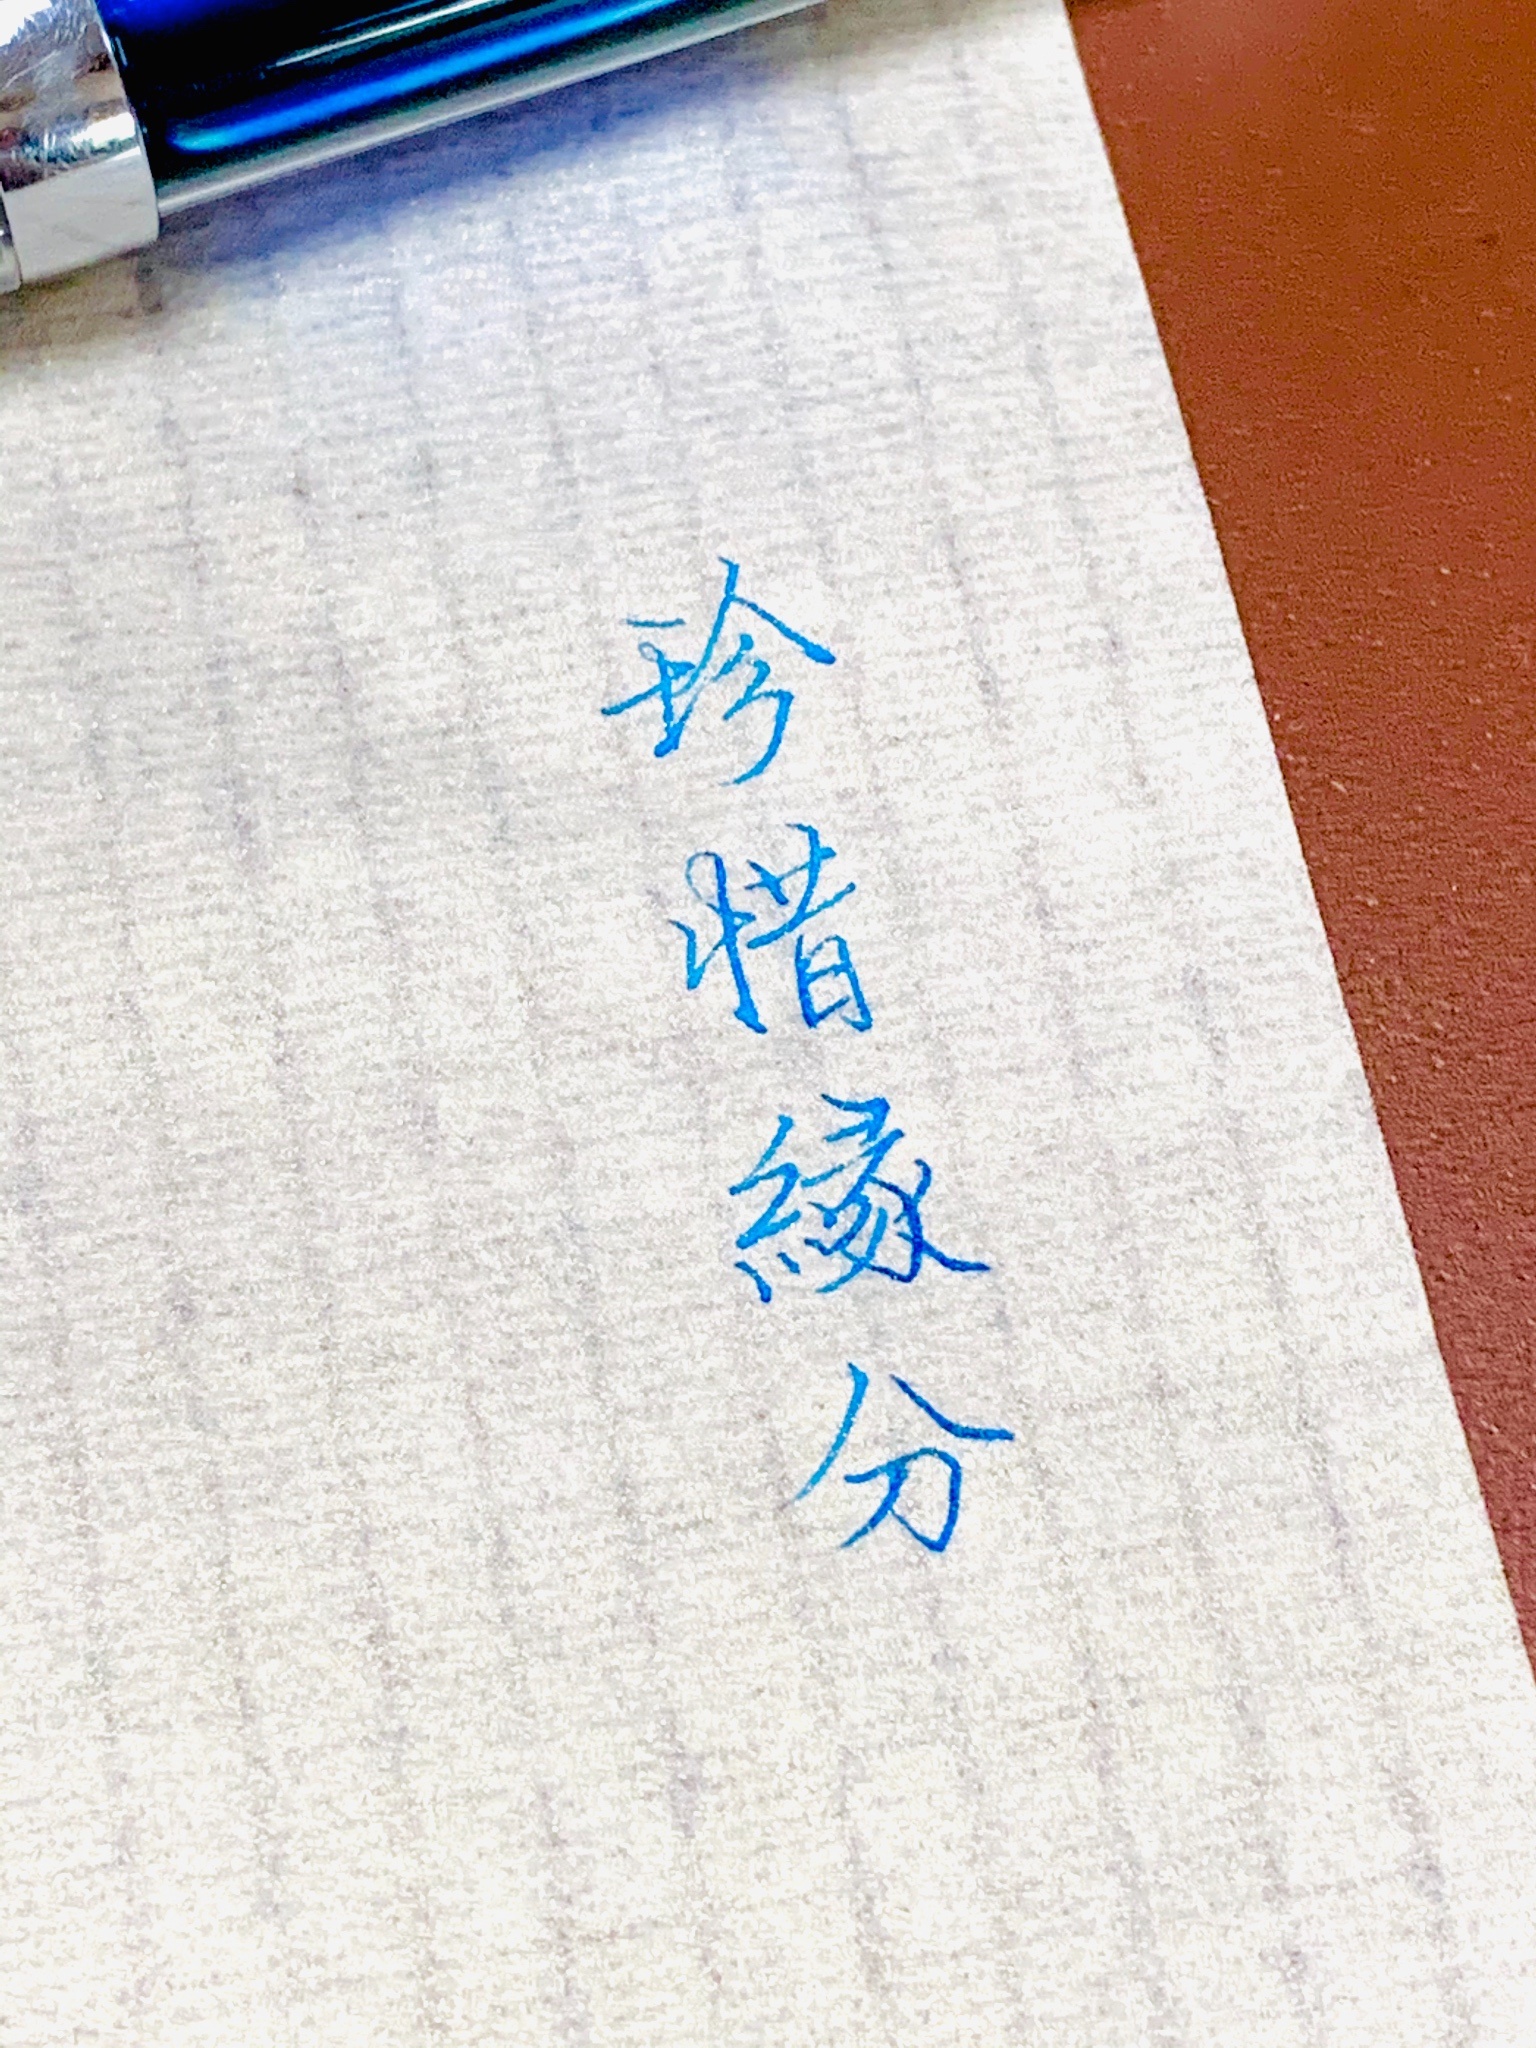 珍惜緣分